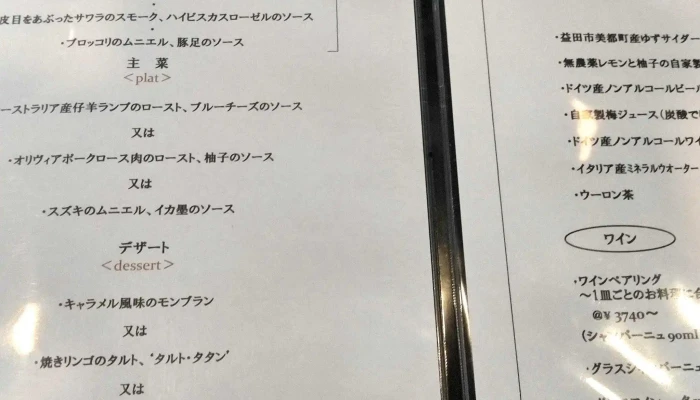 皮目をあぶったサワラのスモーク、ハイビスカスローゼルのソース
・ブロッコリのムニエル、豚足のソース
主 菜
<plat>
ーストラリア産仔羊ランプのロースト、ブルーチーズのソース
又は
・オリヴィアポークロース肉のロースト、柚子のソース
又は
・スズキのムニエル、イカ墨のソース
デザート
<dessert>
・キャラメル風味のモンブラン
又は
・焼きリンゴのタルト、‘タルト・タタン’
又は
・益田市美都町産ゆずサイダー
・無農薬レモンと柚子の自家製
・ドイツ産ノンアルコールビール
・自家製梅ジュース(炭酸で
・ドイツ産ノンアルコールワイ
・イタリア産ミネラルウオーター
・ウーロン茶
ワイン
・ワインペアリング
～1皿ごとのお料理に合
@¥ 3740～
(シャンパーニュ90ml
・グラスシャンパーニュ